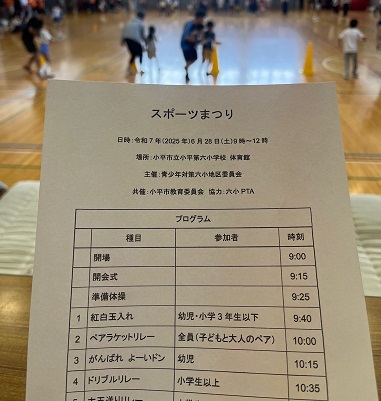 スポーツまつり
日時：令和7年(2025年)6月28日(土)9時～12時
場所：小平市立小平第六小学校 体育館
主催：青少年対策六小地区委員会
共催：小平市教育委員会 協力：六小PTA
プログラム
種目 参加者 時刻
開場 9:00
開会式 9:15
準備体操 9:25
1 紅白玉入れ 幼児・小学3年生以下 9:40
2 ペアラケットリレー 全員(子どもと大人のペア) 10:00
3 がんばれ よーいドン 幼児 10:15
4 ドリブルリレー 小学生以上 10:35